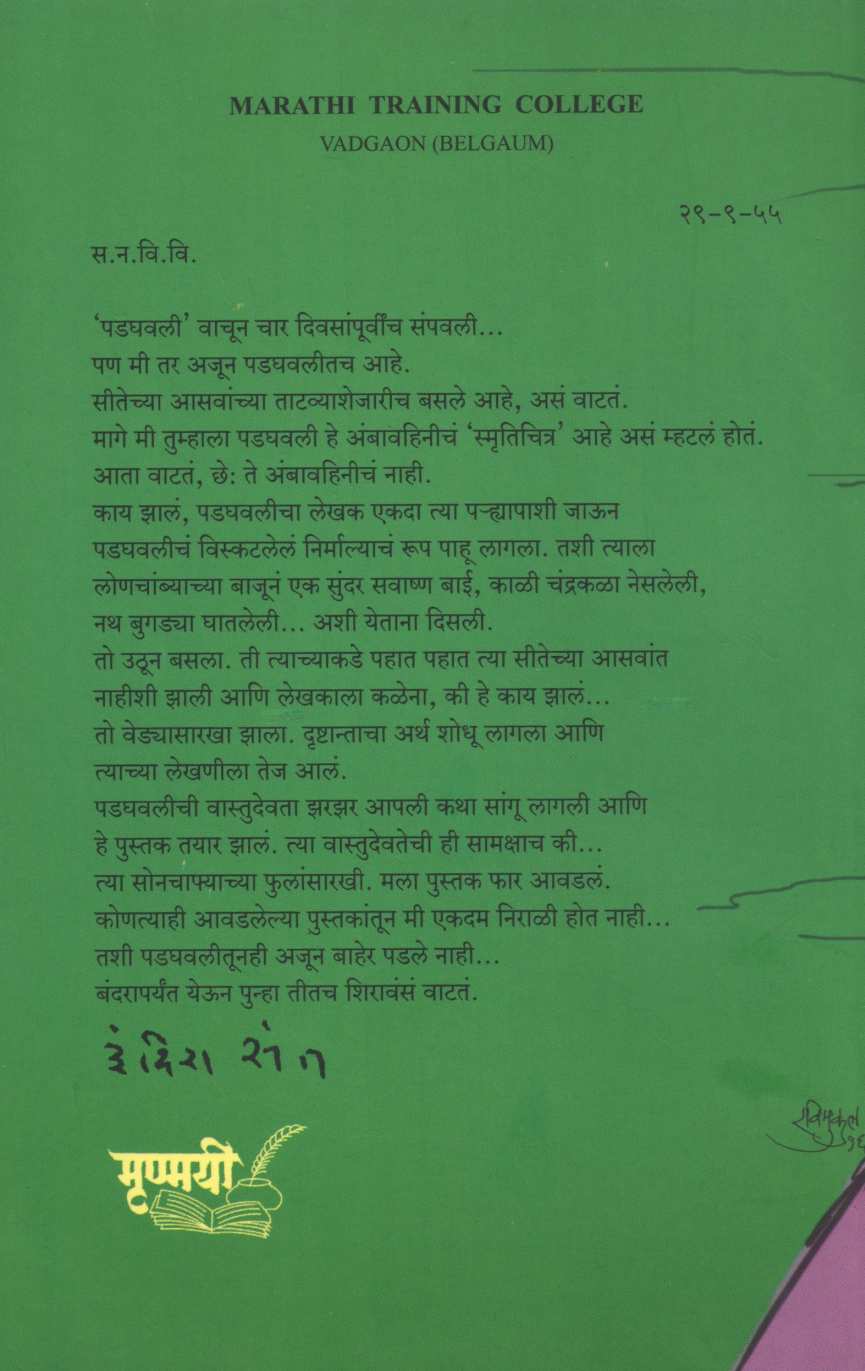 MARATHI TRAINING COLLEGE
VADGAON (BELGAUM)
२९-९-५५
स.न.वि.वि.
'पडघवली' वाचून चार दिवसांपूर्वीच संपवली...
पण मी तर अजून पडघवलीतच आहे.
सीतेच्या आसवांच्या ताटव्याशेजारीच बसले आहे, असं वाटतं.
मागे मी तुम्हाला पडघवली हे अंबावहिनीचं 'स्मृतिचित्र' आहे असं म्हटलं होतं.
आता वाटतं, छे: ते अंबावहिनीचं नाही.
काय झालं, पडघवलीचा लेखक एकदा त्या पऱ्ह्यापाशी जाऊन
पडघवलीचं विस्कटलेलं निर्माल्याचं रूप पाहू लागला. तशी त्याला
लोणचांब्याच्या बाजूनं एक सुंदर सवाष्ण बाई, काळी चंद्रकळा नेसलेली,
नथ बुगड्या घातलेली... अशी येताना दिसली.
तो उठून बसला. ती त्याच्याकडे पहात पहात त्या सीतेच्या आसवांत
नाहीशी झाली आणि लेखकाला कळेना, की हे काय झालं...
तो वेड्यासारखा झाला. दृष्टान्ताचा अर्थ शोधू लागला आणि
त्याच्या लेखणीला तेज आलं.
पडघवलीची वास्तुदेवता झरझर आपली कथा सांगू लागली आणि
हे पुस्तक तयार झालं. त्या वास्तुदेवतेची ही सामक्षाच की...
त्या सोनचाफ्याच्या फुलांसारखी. मला पुस्तक फार आवडलं.
कोणत्याही आवडलेल्या पुस्तकांतून मी एकदम निराळी होत नाही...
तशी पडघवलीतूनही अजून बाहेर पडले नाही...
बंदरापर्यंत येऊन पुन्हा तीतच शिरावंसं वाटतं.
इंदिरा संत
रविमुकुल
१६
मृण्मयी